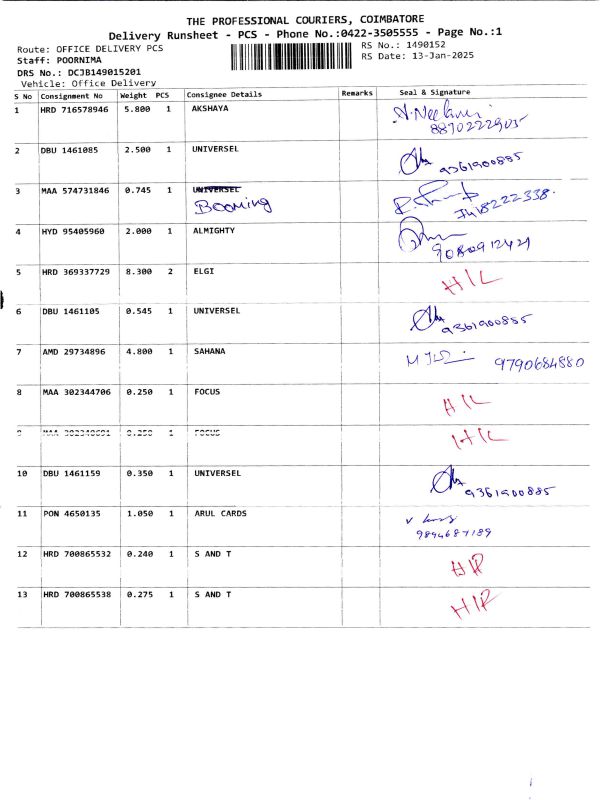 THE PROFESSIONAL COURIERS, COIMBATORE
Delivery Runsheet - PCS - Phone No.:0422-3505555 - Page No.:1
Route: OFFICE DELIVERY PCS
RS No.: 1490152
Staff: POORNIMA
RS Date: 13-Jan-2025
DRS No.: DCJB149015201
Vehicle: Office Delivery
S No Consignment No Weight PCS Consignee Details Remarks Seal & Signature
1 HRD 716578946 5.800 1 AKSHAYA
8870222905
2 DBU 1461085 2.500 1 UNIVERSEL
9361900885
3 MAA 574731846 0.745 1 UNIVERSEL
Booming
7418222338.
4 HYD 95405960 2.000 1 ALMIGHTY
9080912421
5 HRD 369337729 8.300 2 ELGI
H/L
6 DBU 1461105 0.545 1 UNIVERSEL
9361900885
7 AMD 29734896 4.800 1 SAHANA
9790684880
8 MAA 302344706 0.250 1 FOCUS
H/L
9 MAA 302340691 0.250 1 FOCUS
H/L
10 DBU 1461159 0.350 1 UNIVERSEL
9361900885
11 PON 4650135 1.050 1 ARUL CARDS
9894687189
12 HRD 700865532 0.240 1 S AND T
H/R
13 HRD 700865538 0.275 1 S AND T
H/R